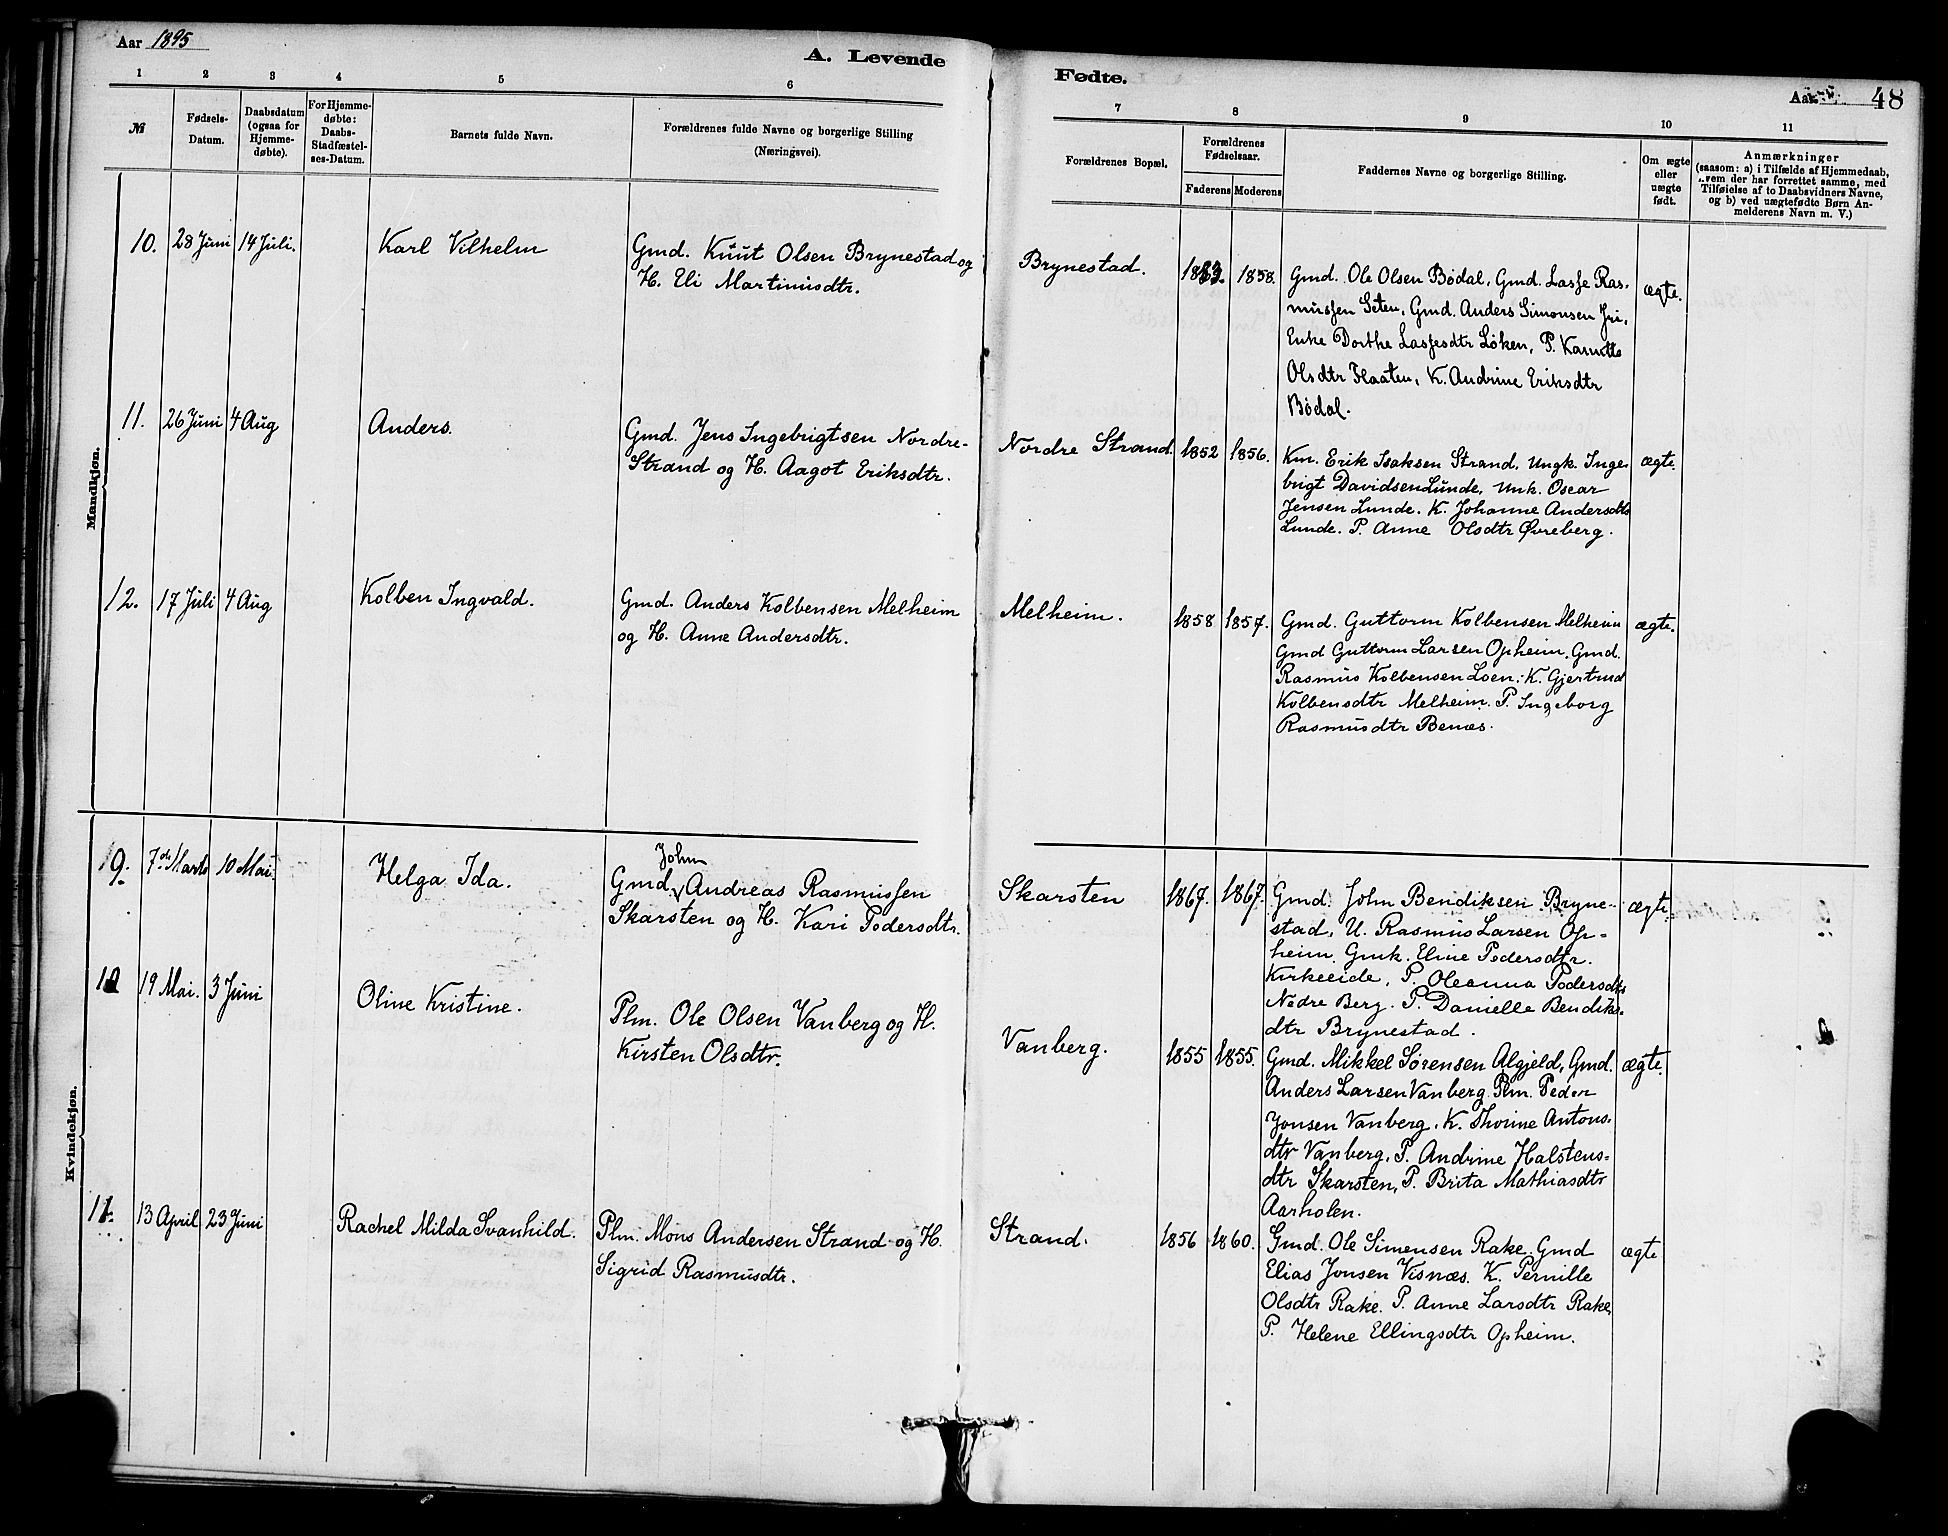 Aar 1895
A. Levende
Fødte.
Aar
48
1 2 3 4 5 6
7 8 9 10 11
№
Fødsels-
Datum.
Daabsdatum
(ogsaa for
Hjemme-
døbte).
For Hjemme-
døbte:
Daabs-
Stadfæstel-
ses-Datum.
Barnets fulde Navn.
Forældrenes fulde Navne og borgerlige Stilling
(Næringsvei).
Forældrenes Bopæl.
Forældrenes
Fødselsaar.
Faderens
Moderens
Faddernes Navne og borgerlige Stilling.
Om ægte
eller
uægte
født.
Anmærkninger
(saasom: a) i Tilfælde af Hjemmedaab,
hvem der har forrettet samme, med
Tilføielse af to Daabsvidners Navne,
og b) ved uægtefødte Børn An-
melderens Navn m. V.)
Mandkjøn.
10. 28 Juni 14 Juli. Karl Vilhelm
Gmd. Knut Olsen Brynestad og
H. Eli Martinusdtr.
Brynestad. 1858.
Gmd. Ole Olsen Bødal, Gmd. Lasse Ras-
mussen Seten, Gmd. Anders Simonsen Fri,
Enke Dorthe Lassesdtr Løken, P. Karnette
Olsdtr Haaten, K. Andrine Eriksdtr
Bødal.
ægte.
11. 26 Juni 4 Aug Anders.
Gmd. Jens Ingebrigtsen Nordre-
Strand og H. Aagot Eriksdtr.
Nordre Strand. 1852 1856.
Km. Erik Isaksen Strand, Ungk. Inge-
brigt Davidsen Lunde, Unk. Oscar
Jensen Lunde. K. Johanne Andersdtr
Lunde. P. Anne Olsdtr Øvreberg.
ægte.
12. 17 Juli 4 Aug Kolben Ingvald.
Gmd. Anders Kolbensen Melheim
og H. Anne Andersdtr.
Melheim. 1858 1857.
Gmd. Guttorm Kolbensen Melheim
Gmd Guttorm Larsen Opheim, Gmd.
Rasmus Kolbensen Loen. K. Gjertrud
Kolbensdtr Melheim. P. Ingeborg
Rasmusdtr Benæs.
ægte.
Kvindekjøn.
9. 7de Marts 10 Mai. Helga Ida.
John
Gmd. Andreas Rasmussen
Skarsten og H. Kari Pedersdtr.
Skarsten 1867. 1867.
Gmd. John Bendiksen Bryne-
stad, U. Rasmus Larsen Op-
heim, Gmk. Eline Pedersdtr.
Kirkeeide, P. Oleanna Pedersdtr
Nedre Berg. P. Danielle Bendiks-
dtr Brynestad.
ægte.
19 Mai. 3 Juni Oline Kristine.
Plm. Ole Olsen Vanberg og H.
Kirsten Olsdtr.
Vanberg. 1855 1855.
Gmd. Mikkel Sørensen Algjeld, Gmd.
Anders Larsen Vanberg. Plm. Peder
Jonsen Vanberg. K. Thorine Antons-
dtr Vanberg, P. Andrine Halstens-
dtr Skarsten, P. Brita Mathiasdtr
Aarholen.
ægte.
11. 13 April 23 Juni Rachel Milda Svanhild.
Plm. Mons Andersen Strand og H.
Sigrid Rasmusdtr.
Strand. 1856 1860.
Gmd. Ole Simensen Rake. Gmd
Elias Jonsen Visnæs. K. Pernille
Olsdtr Rake. P. Anne Larsdtr Rake,
P. Helene Ellingsdtr Opheim.
ægte